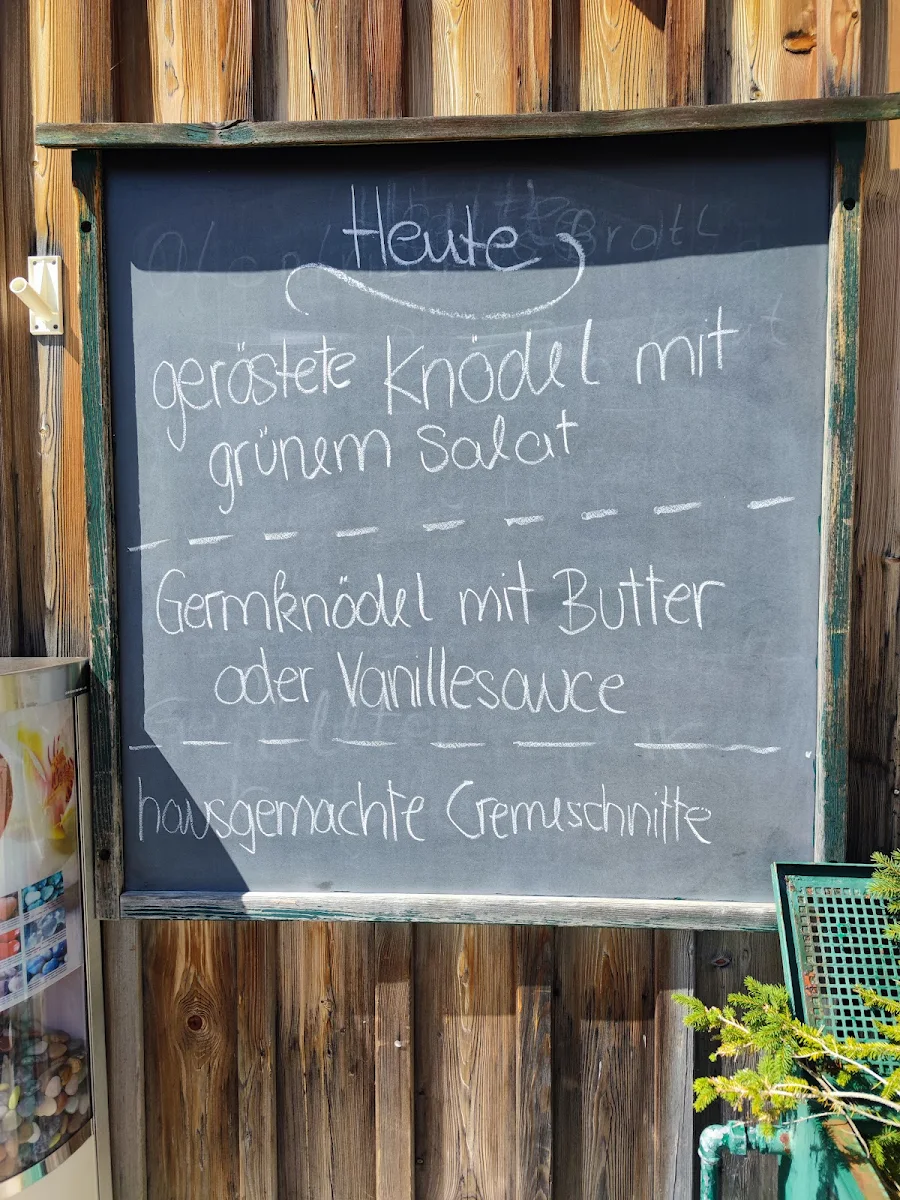 Heute
geröstete Knödel mit
grünem Salat
Germknödel mit Butter
oder Vanillesauce
hausgemachte Cremeschnitte